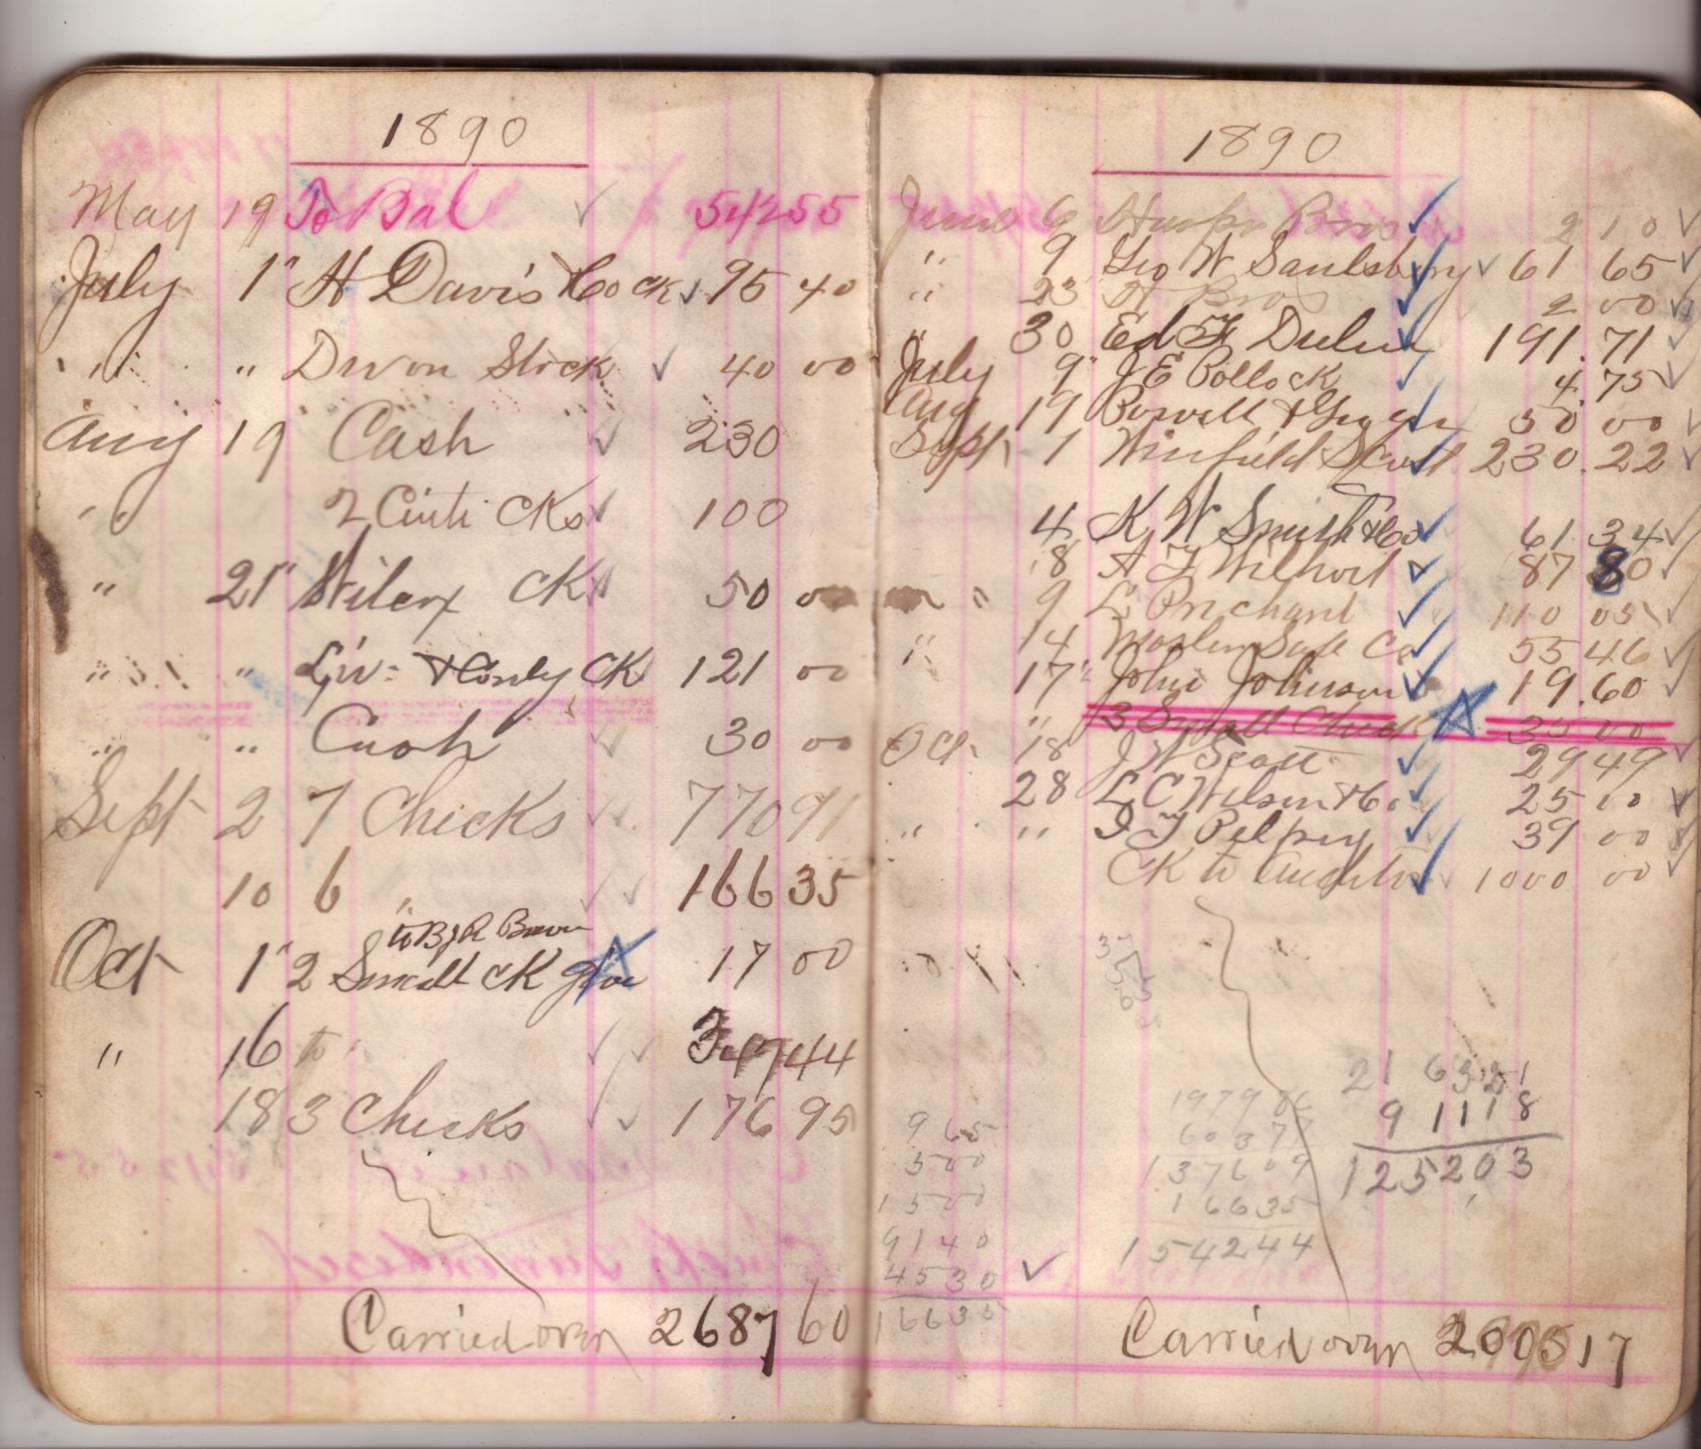 1890
May 19 To Bal 542 55
July 1" H Davis & Co ck 95 40
" " Devon Stock 40 00
Aug 19 Cash 230
" 2 Cinti CKs 100
" 21" Wilcox CK 50 00
" " Liv = & Conly CK 121 00
" " Cash 30 00
Sept 2 7 Checks 770 91
10 6 " 166 35
to B J R Brown
Oct 1" 2 Small cK give 17 00
" 16 to 347 44
18 3 Checks 176 95
Carried over 2687 60
1890
June 6 Bros 2 10
" 9 Geo W Saulsbery 61 65
" 23 H Bros 2 00
30 Ed F Dulin 191.71
July 9" J E Pollock 4.75
Aug 19 50 00
Sept 1 Winfield Scott 230.22
4 K W Smith & Co 61 34
8 A F 87 80
" 9 L Prichard 110 05
" 14 Moslen Safe Co 55 46
17" John Johnson 19.60
" 3 Small Checks 35 00
Oct 18 J W Scott 29 49
28 L C Wilson & Co 25 00
" " J F Pelprey 39 00
CK to 1000 00
9 65
5 00
15 00
91 40
45 30
166 35
1979 86
603 77
1376 09
166 35
1542 44
21 63 21
9 11 18
12 52 03
Carried over 2005 17